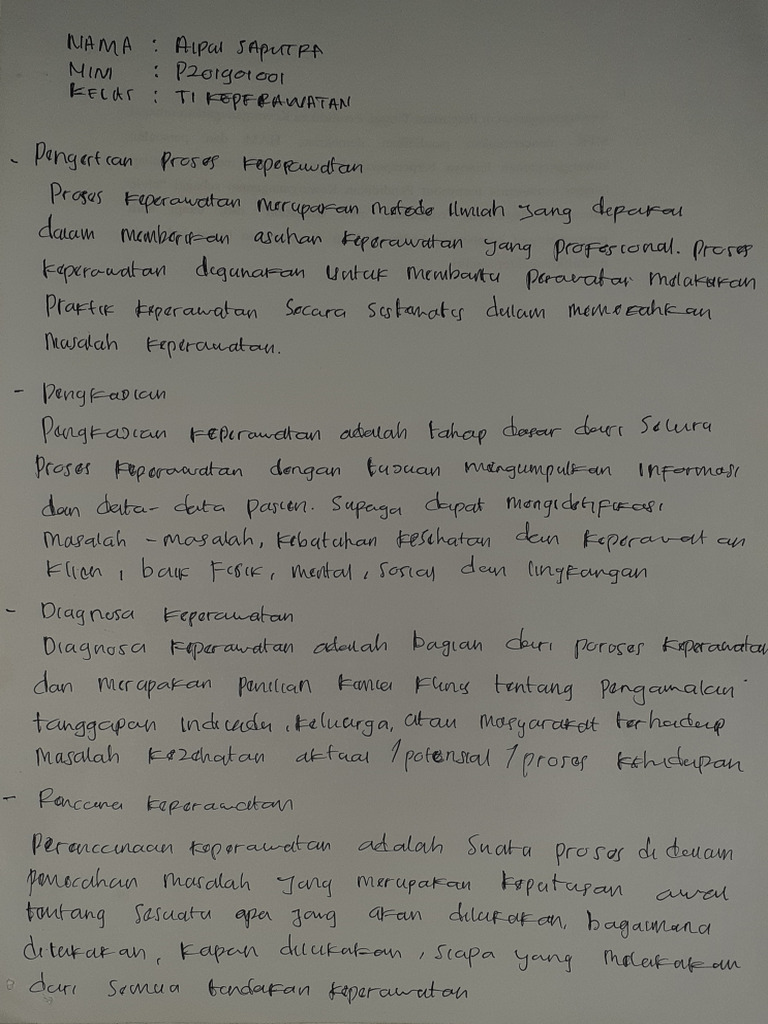 NAMA : Aipul SAPUTRA
NIM : P201901001
KELAS : T1 KEPERAWATAN
- Pengertian Proses Keperawatan
Proses Keperawatan merupakan metode Ilmiah yang depakai
dalam memberikan asuhan Keperawatan yang profesional. Proses
Keperawatan degunakan Untuk membantu perawatan melakukan
Praktik Keperawatan Secara Sistematis dalam memecahkan
Masalah Keperawatan.
- Pengkajian
Pengkajian Keperawatan adalah tahap dasar dari Selura
Proses Keperawatan dengan tujuan mengumpulkan Informasi
dan data-data pasien. Supaya dapat mengidetifikasi
Masalah-masalah, Kebutuhan Kesehatan dan Keperawatan
Klien, baik Fisik, mental, sosial dan lingkangan
- Diagnosa Keperawatan
Diagnosa Keperawatan adalah bagian dari poroses Keperawatan
dan merapakan penilian klinis tentang pengamalan
tanggapan Individu, Keluarga, atau masyarakat terhadap
Masalah Kesehatan aktual / potensial / proses Kehidupan
- Rencana Keperawatan
Perencanaan Keperawatan adalah Suatu proses di dalam
pemecahan Masalah yang merupakan Keputusan awal
tentang Sesuatu apa yang akan dilakukan, bagaimana
dilakukan, Kapan dilakukan, siapa yang melakukan
dari Semua tindakan Keperawatan